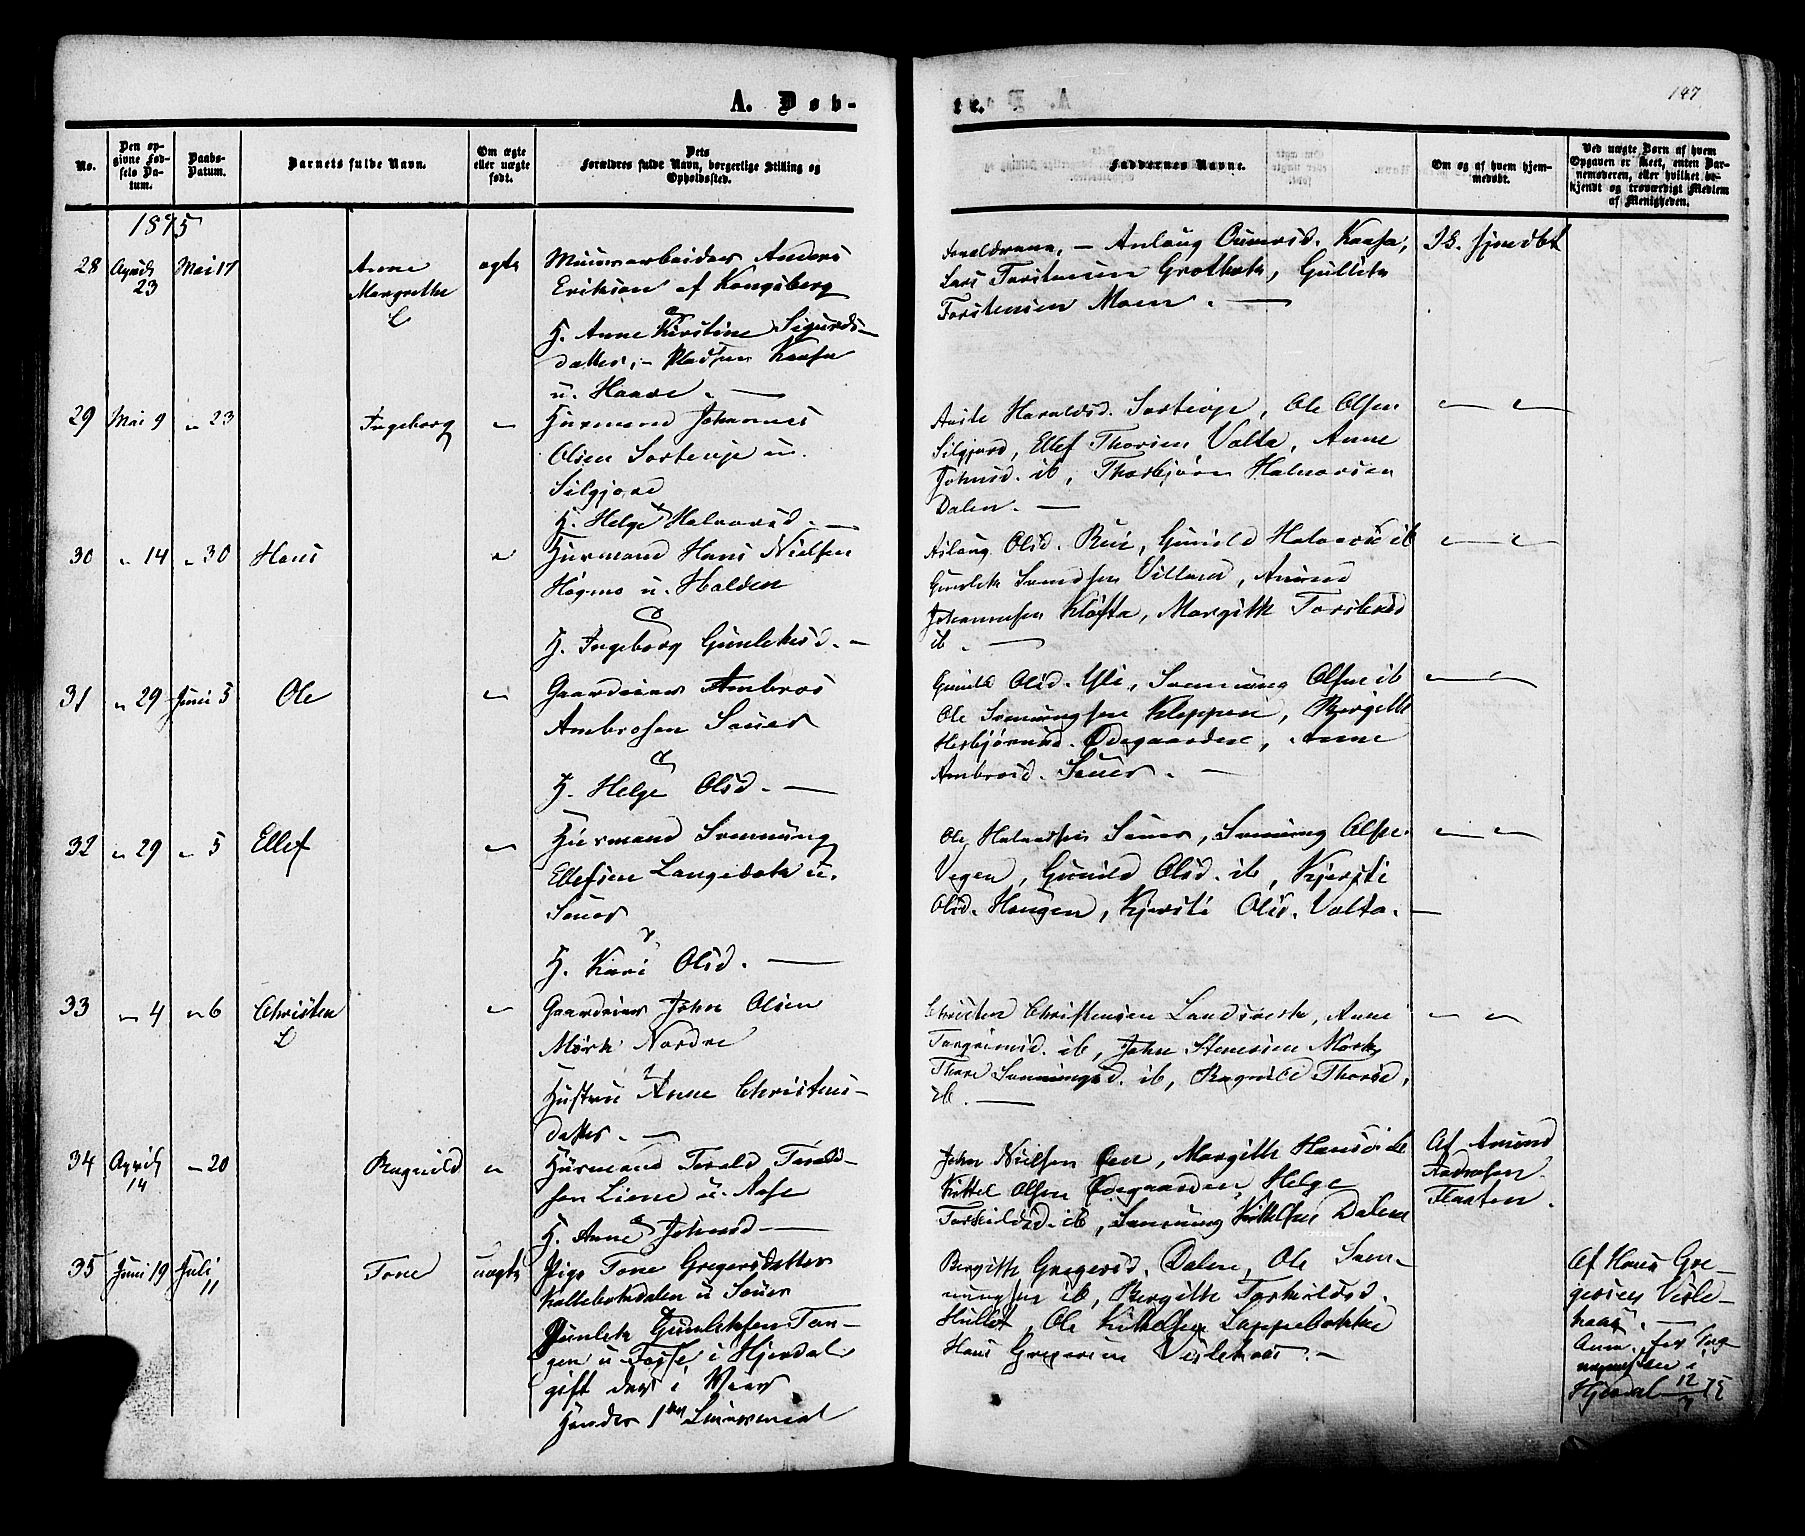 A. Døb-
te.
147
No.
Den op-
givne Fød-
sels Da-
tum.
Daabs-
Datum.
Barnets fulde Navn.
Om ægte
eller uægte
født.
Dets
Forældres fulde Navn, borgerlige Stilling og
Opholdssted.
Faddernes Navne.
Om og af hvem hjem-
medøbt.
Ved uægte Børn af hvem
Opgaven er skeet, enten Bar-
nemoderen, eller hvilket be-
kjendt og troværdigt Medlem
af Menigheden.
1875
28 April 23 Mai 17
Anne
Margrethe
ægte
Minearbeider Anders
Eriksen af Kongsberg
H. Anne Kirstine Sigurds-
datter, - Pladsen Kaasa
u. Haave.
Forældrene, - Anlaug Gunersd. Kaasa,
Lars Torstensen Grotbæk, Gullik
Torstensen Moen.
Ik. hjemdbt
29 Mai 9 " 23
Ingeborg
"
Husmand Johannes
Olsen Sorteroje u.
Silgjord
H. Helge Halvorsd.
Aaste Haraldsd. Sorteroje, Ole Olsen
Silgjord, Ellef Thorsen Valta, Anne
Johnsd. ib, Thorbjørn Halvorsen
Dalen.
" "
30 " 14 " 30 Hans
"
Husmand Hans Nielsen
Høgmo u. Holden
H. Ingeborg Gunleksd.
Aslaug Olsd. Rui, Gunild Halvorsd ib
Gunlek Svendsen Villand, Amund
Johannesen Kløfta, Margith Torsteinsd
ib.
" "
31 " 29 Juni 5 Ole
"
Gaardeier Ambros
Ambrosen Sauer
H. Helge Olsd.
Gunild Olsd. Yli, Sveinung Olsen ib
Ole Sveinungsen Kleppen, Bergith
Herbjørnsd. Ødegaarden, Anne
Ambrosd. Sauer.
" "
32 " 29 " 5 Ellef
"
Husmand Sveinung
Ellefsen Langebæk u.
Sauer
H. Kari Olsd.
Ole Halvorsen Sauer, Sveinung Olsen
Vegen, Gunild Olsd. ib, Kjersti
Olsd. Haugen, Kjersti Olsd. Valta.
" "
33 " 4 " 6 Christen
"
Gaardeier John Olsen
Mørk Nordre
Hustru Anne Christens-
datter.
Christen Christensen Landsverk, Anne
Torgrimsd. ib, John Stenersen Mørk,
Thore Sveinungsd. ib, Ragnild Thorsd,
ib.
" "
34 April 14 " 20
Ragnild
"
Husmand Torald Torald-
sen Liene u. Aase
H. Anne Johnsd
John Nielsen Øen, Margith Hansd ib
Kittel Olsen Ødegaarden, Helge
Torkildsd. ib, Sveinung Kittelsen Dalene
Af Amund
Andersen
Flaaten.
35 Juni 19 Juli 11
Tone
uægte
Pige Tone Gregersdatter
Kallebækdalen u Sauer
Gunlek Gunleksen Tan-
gen u Fosse i Hjerdal
gift der i
1ste Leiermaal
Bergith Gregersd. Dalen, Ole Svei-
nungsen ib, Bergith Torkildsd.
Hullet, Ole Kittelsen Lappebække
Hans Gregersen Veslehaas.
Af Hans Gre-
gersen Vesle-
haas.
Anm. for
i
Hjerdal 12/7 75